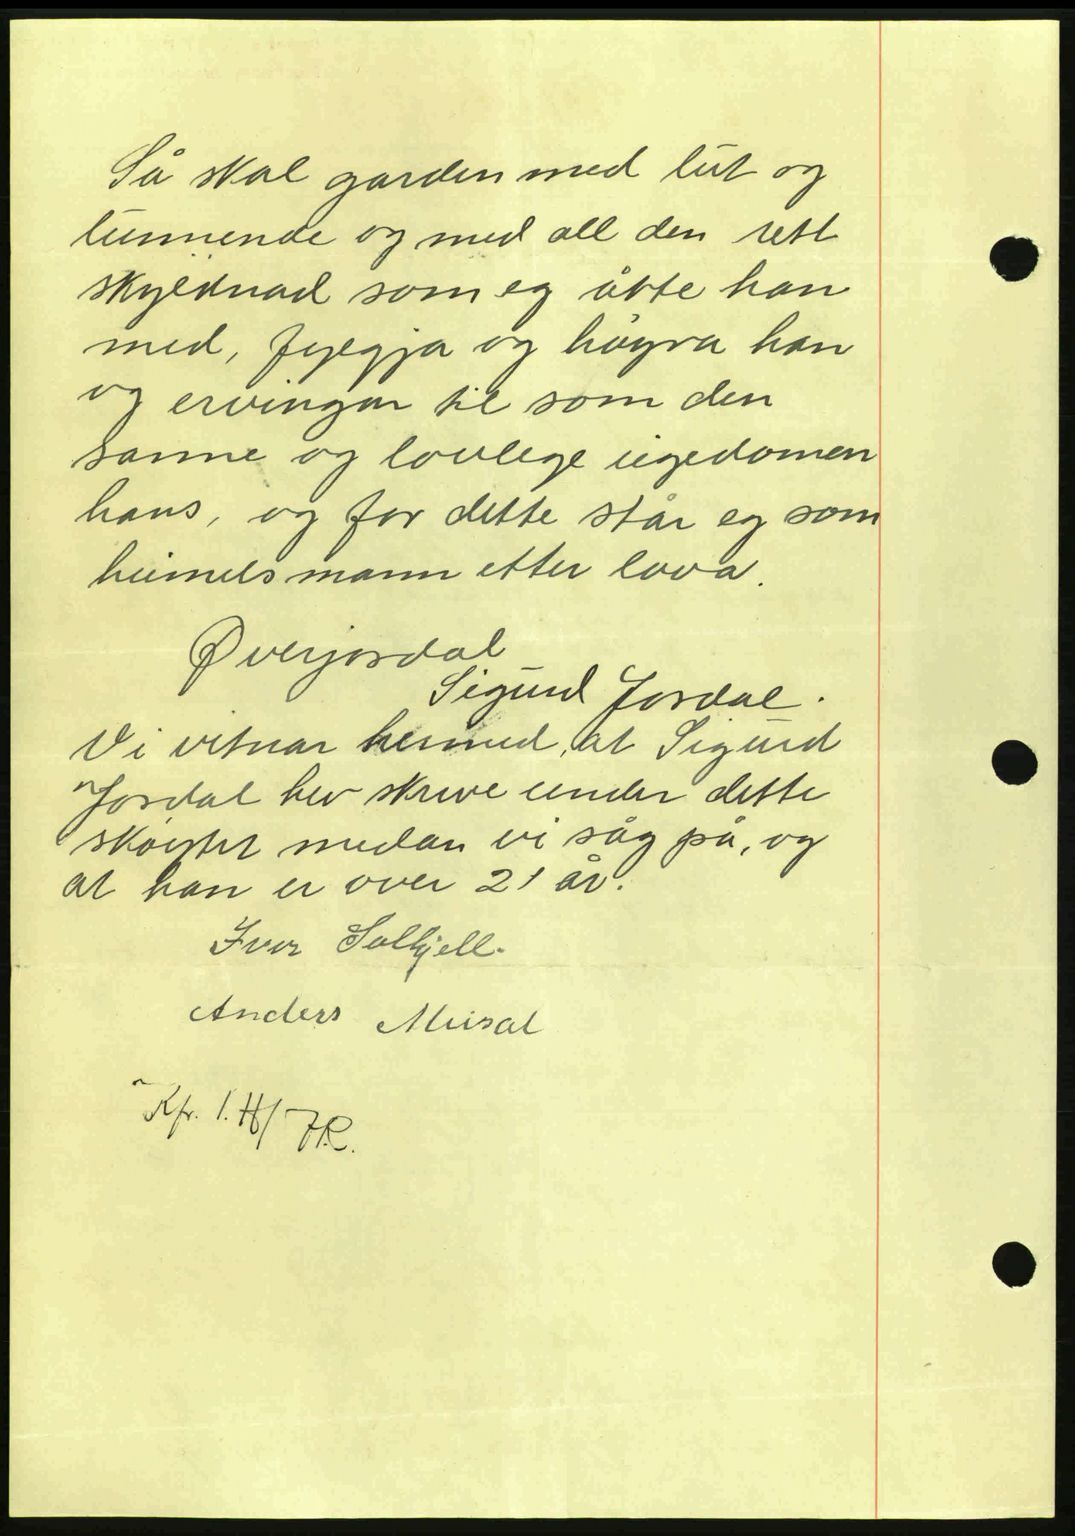 Så skal garden med lut og
lunnende og med all den rett
skyldnad som eg åtte han
med, fylgja og høyra han
og ervingar til som den
sanne og lovlege eigedomen
hans, og for dette står eg som
heimelsmann etter lova.
Øverjordal
Sigurd Jordal.
Vi vitnar hermed, at Sigurd
Jordal hev skreve under dette
skøytet medan vi såg på, og
at han er over 21 år.
Ivar Solkjell.
Anders Meisal
Kfr. I. H/ JR.